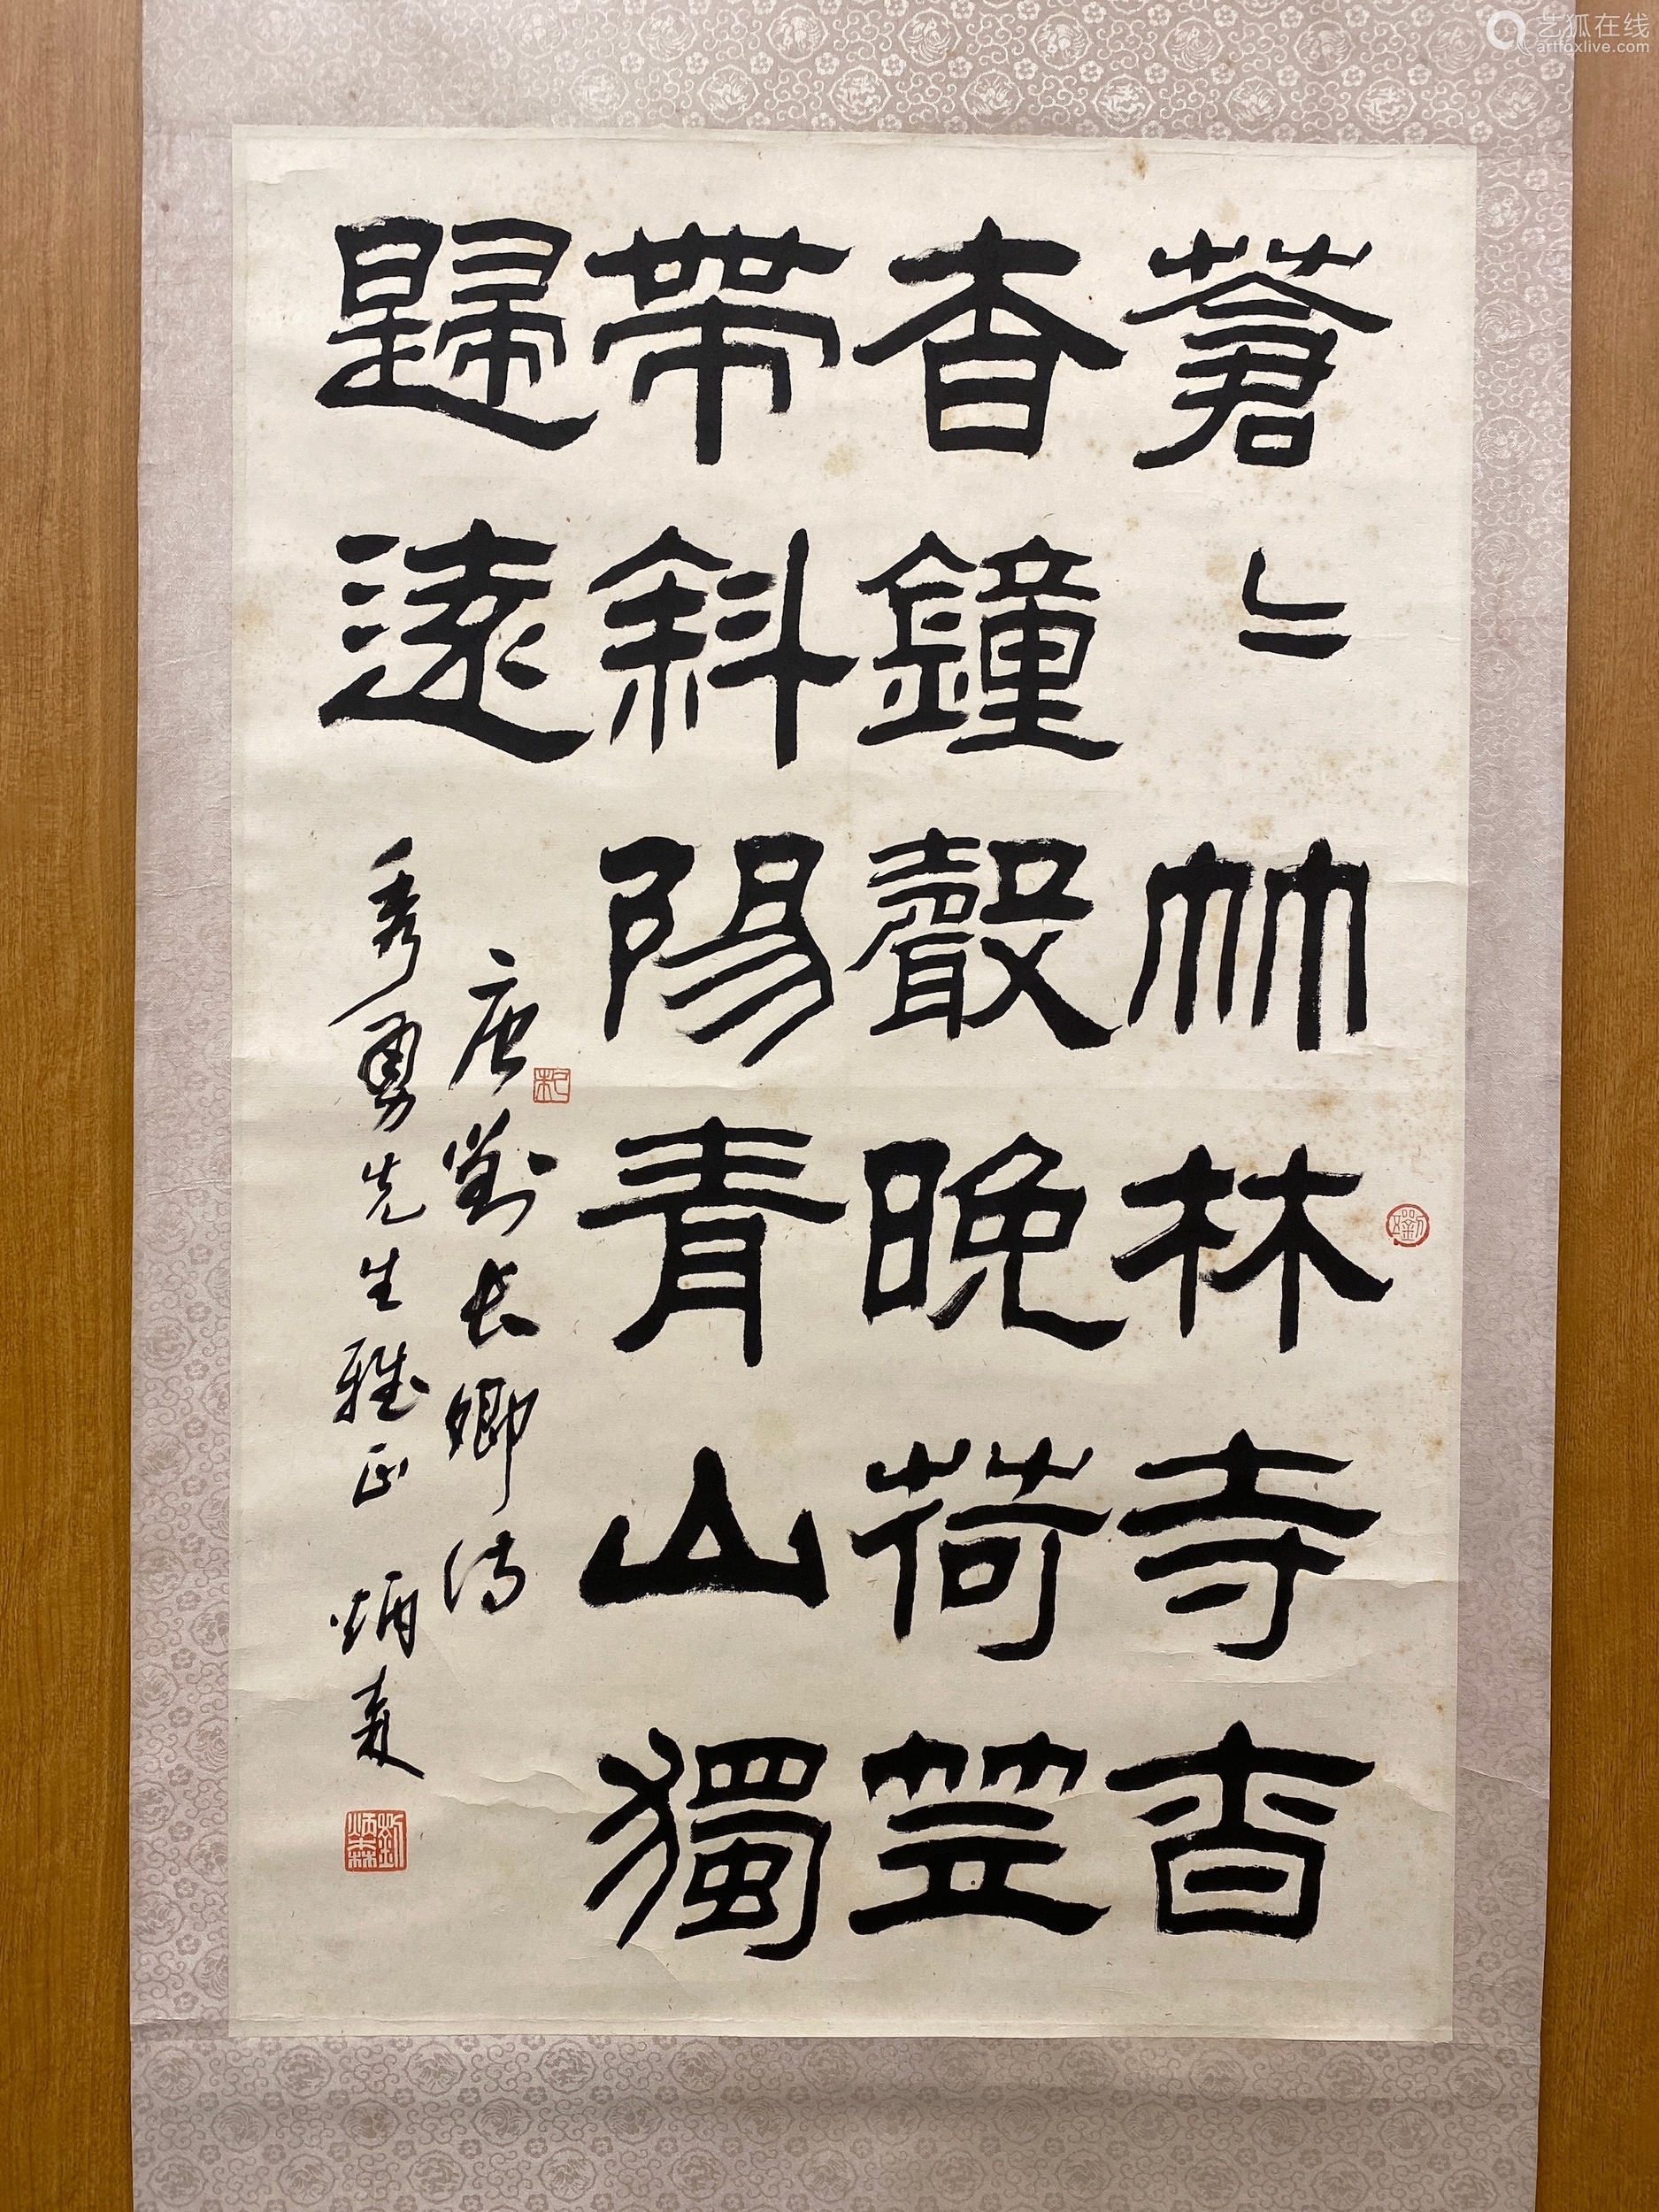 艺狐在线
artfoxlive.com
蒼〻竹林寺杳
杳鐘聲晚荷笠
帶斜陽青山獨
歸遠
唐劉長卿詩
秀勇先生雅正 炳森
劉炳森